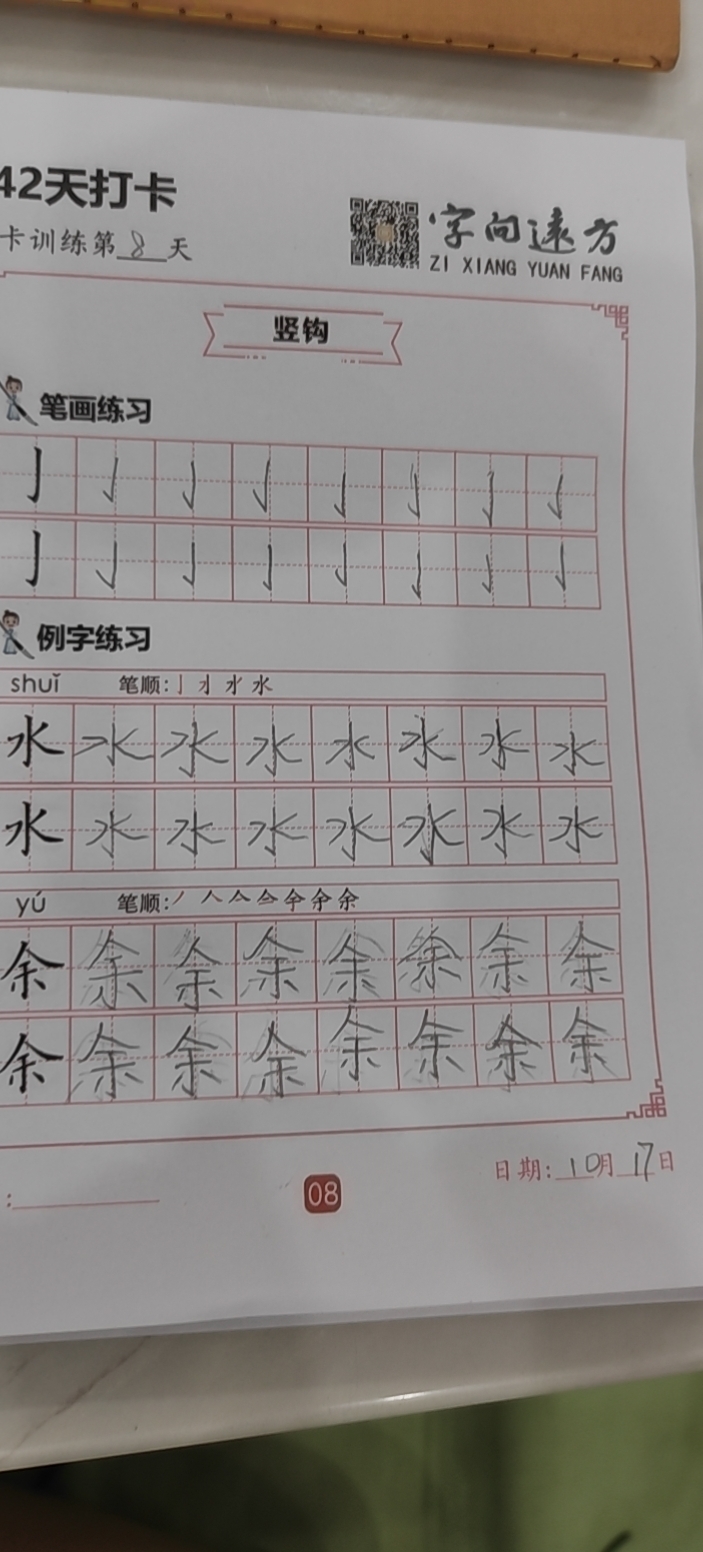 42天打卡
卡训练第 8 天
字向远方
ZI XIANG YUAN FANG
竖钩
笔画练习
亅 亅 亅 亅 亅 亅 亅 亅
亅 亅 亅 亅 亅 亅 亅 亅
例字练习
shuǐ 笔顺:
水 水 水 水 水 水 水 水
水 水 水 水 水 水 水 水
yú 笔顺:
余 余 余 余 余 余 余 余
余 余 余 余 余 余 余 余
日期: 10月 17日
08